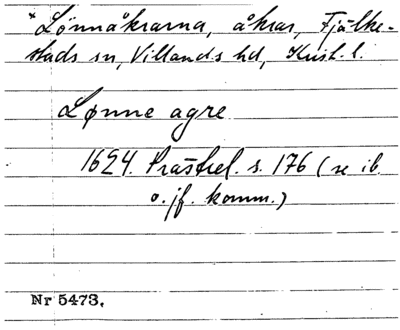 *Lönnåkrarna, åkrar, Fjälke-
stads sn, Villands hd, Krist. l.
Lønne agre
1624. Prästrel. s. 176 (se ib.
o. jf. komm.)
Nr 5473.